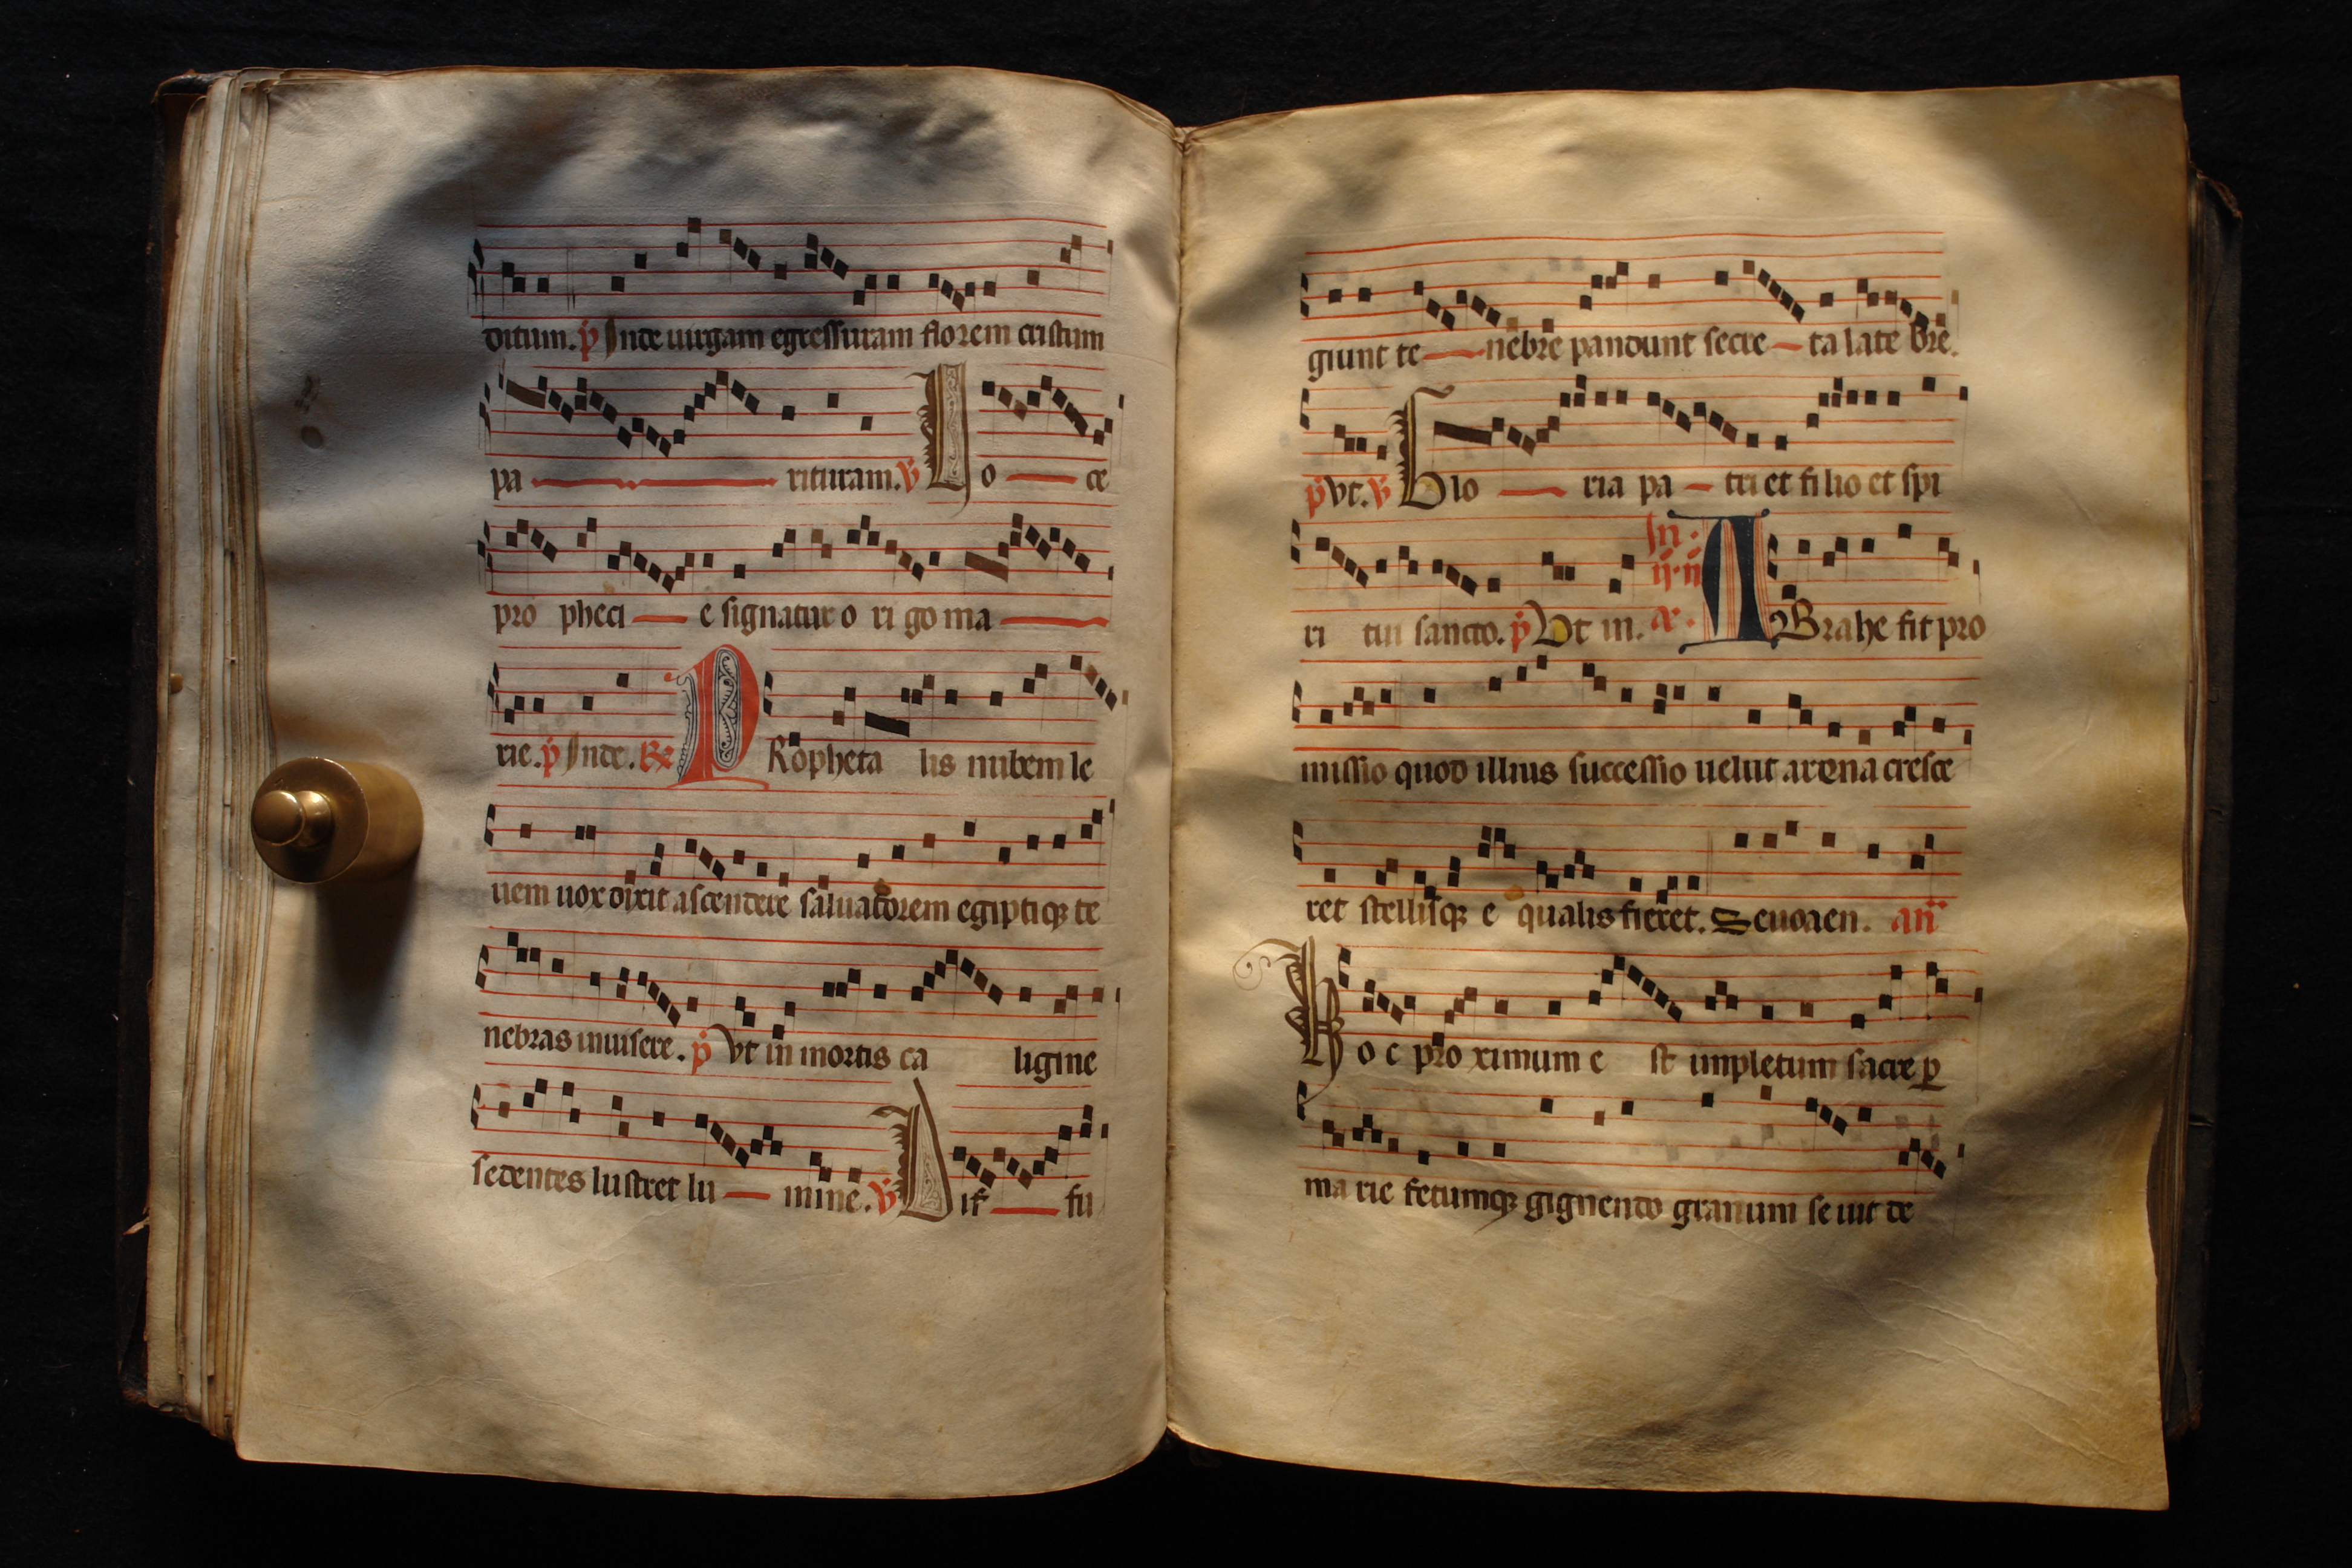 ditum. p Inde uirgam egressuram florem cristum
pa rituram. V Lo ce
pro pheci e signatur o ri go ma
rie. p Inde. R PRopheta lis nubem le
uem uox dixit ascendere saluatorem egiptiqꝫ te
nebras inuisere. p Vt in mortis ca ligine
sedentes lustret lu mine. V Dif fu
giunt te nebre pandunt secre ta late bre.
p Vt. V Glo ria pa tri et filio et spi
ri tui sancto. p Vt in. In ij n ae. ABrahe fit pro
missio quod illius successio uelut arena cresce
ret stellisqꝫ e qualis fieret. Seuouaen. an
Hoc proximum e st impletum sacre ꝑ
marie fetumqꝫ gignendo granum se uit de